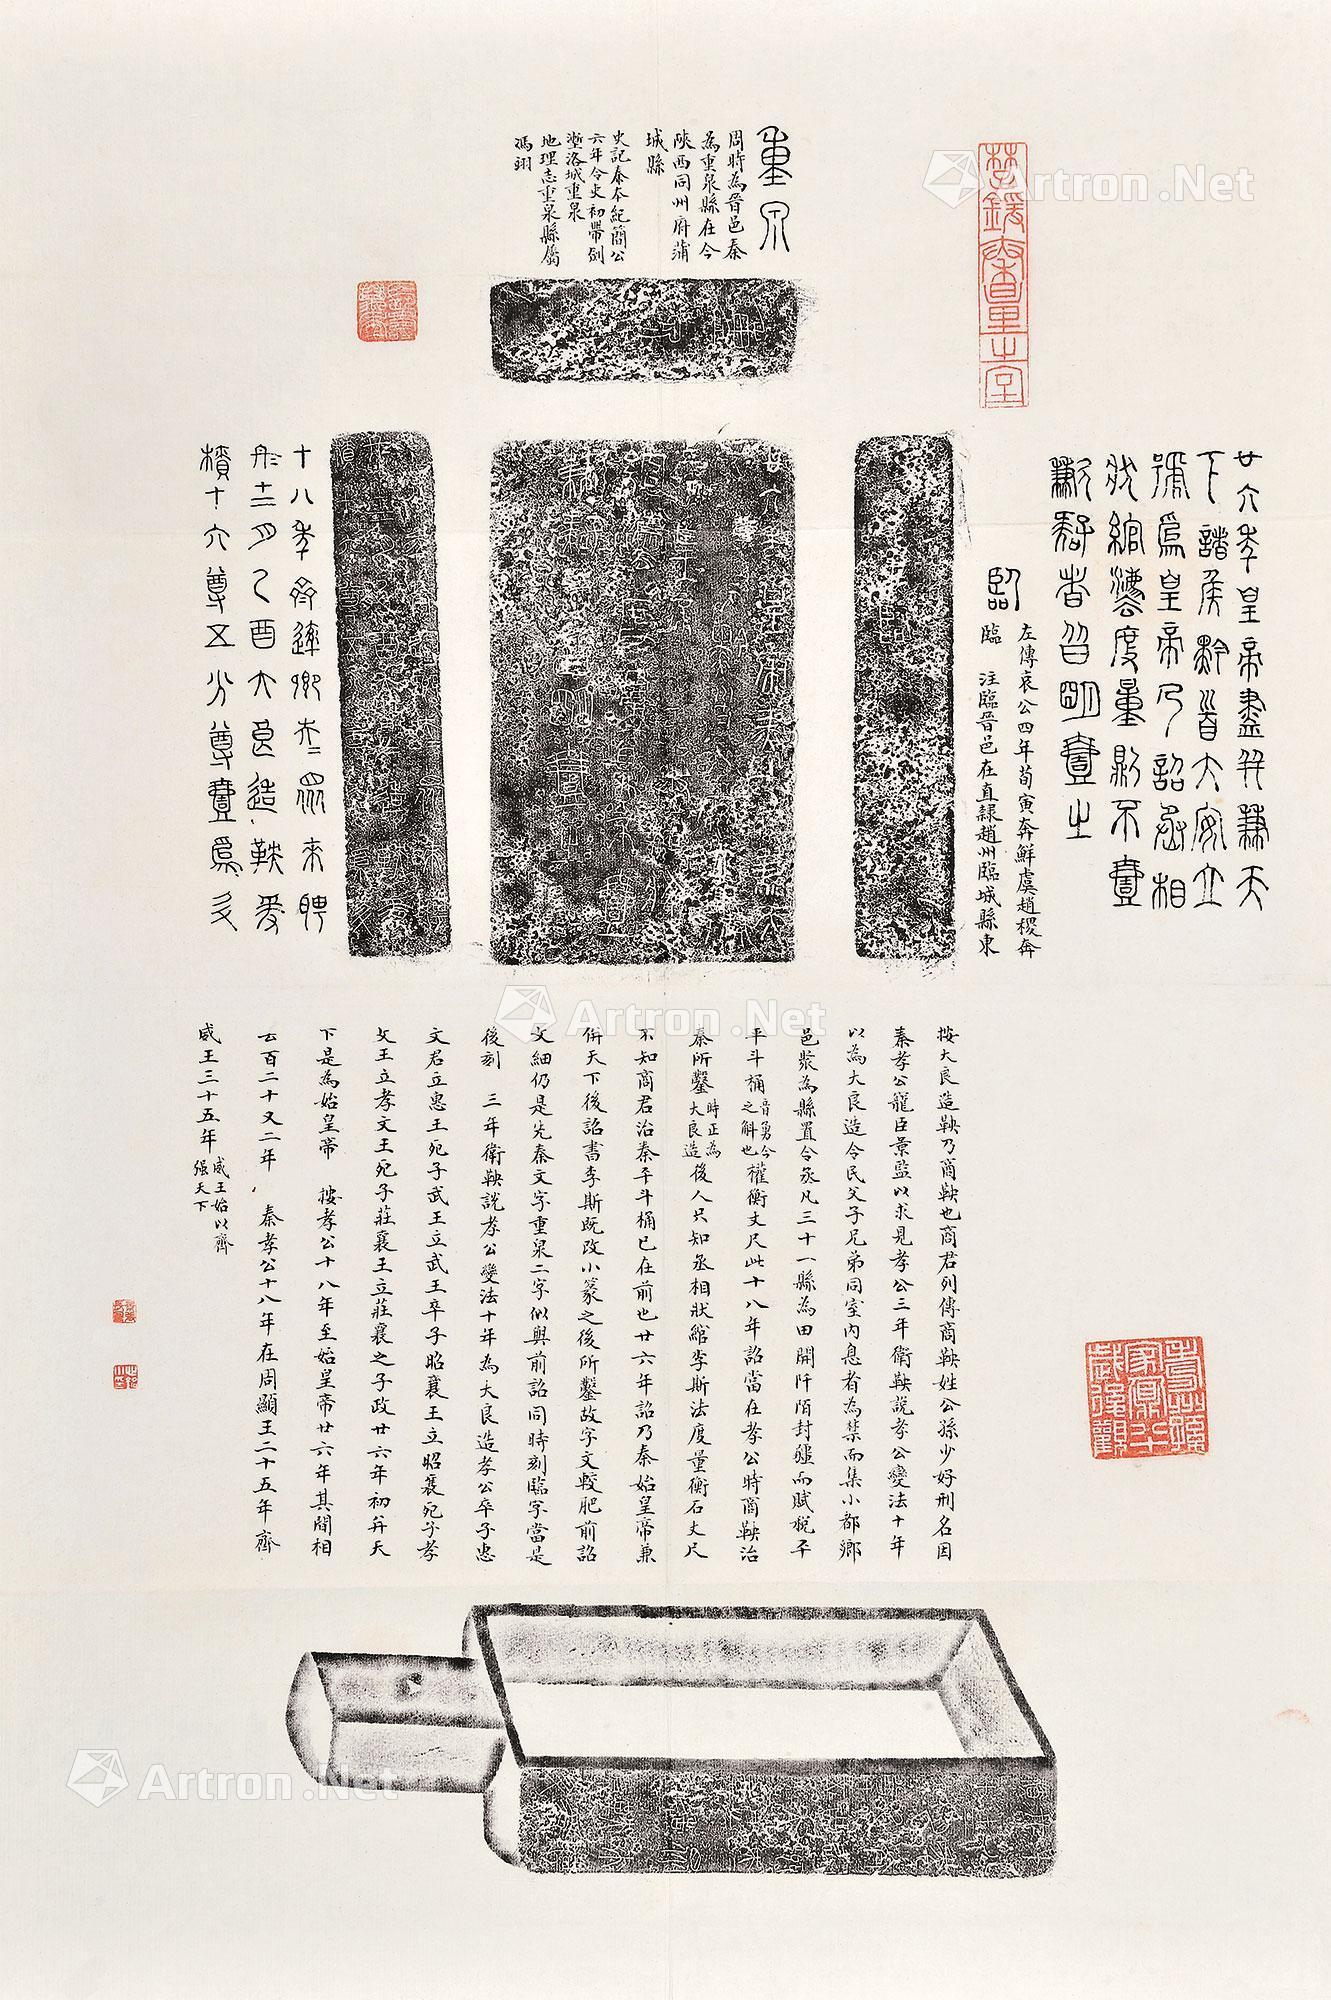 重泉
周時為晉邑秦
為重泉縣在今
陝西同州府蒲
城縣
史記秦本紀簡公
六年令吏初帶劍
塹洛城重泉
地理志重泉縣屬
馮翊
廿六年皇帝盡并兼天
下諸侯黔首大安立
號為皇帝乃詔丞相
狀綰灋度量則不壹
歉疑者皆明壹之
左傳哀公四年荀寅奔鮮虞趙稷奔
臨
臨 注臨晉邑在直隸趙州臨城縣東
十八年齊遣卿大夫眾來聘
冬十二月乙酉大良造鞅爰
積十六尊五分尊壹為升
按大良造鞅乃商鞅也商君列傳商鞅姓公孫少好刑名因
秦孝公寵臣景監以求見孝公三年衛鞅說孝公變法十年
以為大良造令民父子兄弟同室內息者為禁而集小都鄉
邑聚為縣置令丞凡三十一縣為田開阡陌封疆而賦稅平
平斗桶音勇今之斛也權衡丈尺此十八年詔當在孝公時商鞅治
秦所鑿時正為大良造後人只知丞相狀綰李斯法度量衡石丈尺
不知商君治秦平斗桶已在前也廿六年詔乃秦始皇帝兼
併天下後詔書李斯既改小篆之後所鑿故字文較肥前詔
文細仍是先秦文字重泉二字似與前詔同時刻臨字當是
後刻 三年衛鞅說孝公變法十年為大良造孝公卒子惠
文君立惠王死子武王立武王卒子昭襄王立昭襄死子孝
文王立孝文王死子莊襄王立莊襄之子政廿六年初并天
下是為始皇帝 按孝公十八年至始皇帝廿六年其間相
去百二十又二年 秦孝公十八年在周顯王二十五年齊
威王三十五年威王始以齊強天下
Artron.Net
Artron.Net
Artron.Net